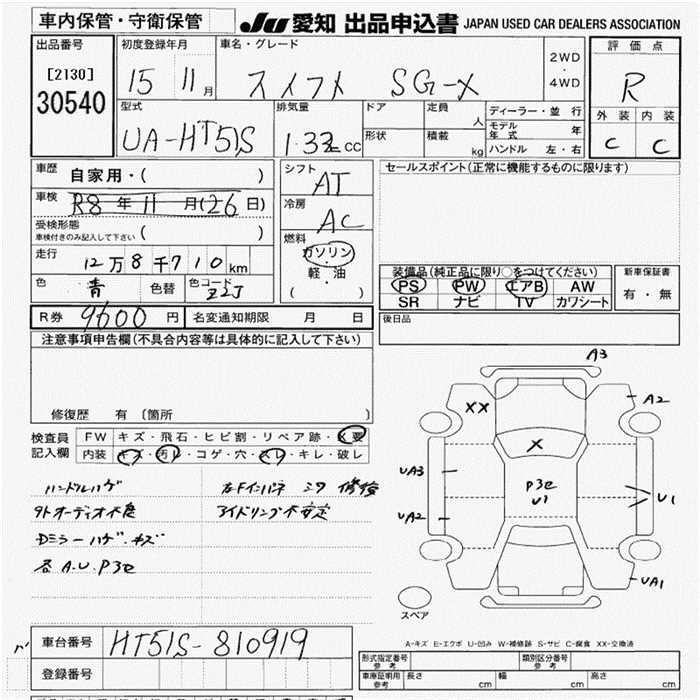 車内保管・守衛保管
JU 愛知 出品申込書 JAPAN USED CAR DEALERS ASSOCIATION
出品番号
[2130]
30540
初度登録年月
15 11月
車名・グレード
スイフト SG-X
2WD
・
4WD
評価点
R
外装 内装
C C
型式
UA-HT51S
排気量
1.33 CC
ドア
形状
定員 人
積載 kg
ディーラー・並行
モデル年式 年
ハンドル 左・右
車歴 自家用・( )
車検 R8年11月(26日)
受検形態
車検付きのみ記入して下さい ( )
走行 12万8千710km
色 青 色替 色コード ZZJ
シフト
AT
冷房
AC
燃料
ガソリン
・
軽・油
( )
セールスポイント(正常に機能するものに限ります)
装備品(純正品に限り○をつけてください)
PS PW エアB AW
SR ナビ TV カワシート
新車保証書
有・無
R券 9600円 名変通知期限 月 日
後日品
注意事項申告欄(不具合内容等は具体的に記入して下さい)
修復歴 有〔箇所 〕
検査員記入欄
FW キズ・飛石・ヒビ割・リペア跡・X要
内装 キズ・汚レ・コゲ・穴・スレ・キレ・破レ
ハンドルハゲ
左Fインパネ ミワ 修後
外オーディオ不良
アイドリング不安定
Dミラーハゲ・キズ
各A.U.P3e
A3
XX
A2
X
UA3
P3e
U1
U1
UA2
UA1
スペア
A-キズ E-エクボ U-凹み W-補修跡 S-サビ C-腐食 XX-交換済
車台番号 HT51S-810919
登録番号
形式指定番号 参考
類別区分番号 参考
車庫証明用 参考 長さ cm 幅 cm 高さ cm